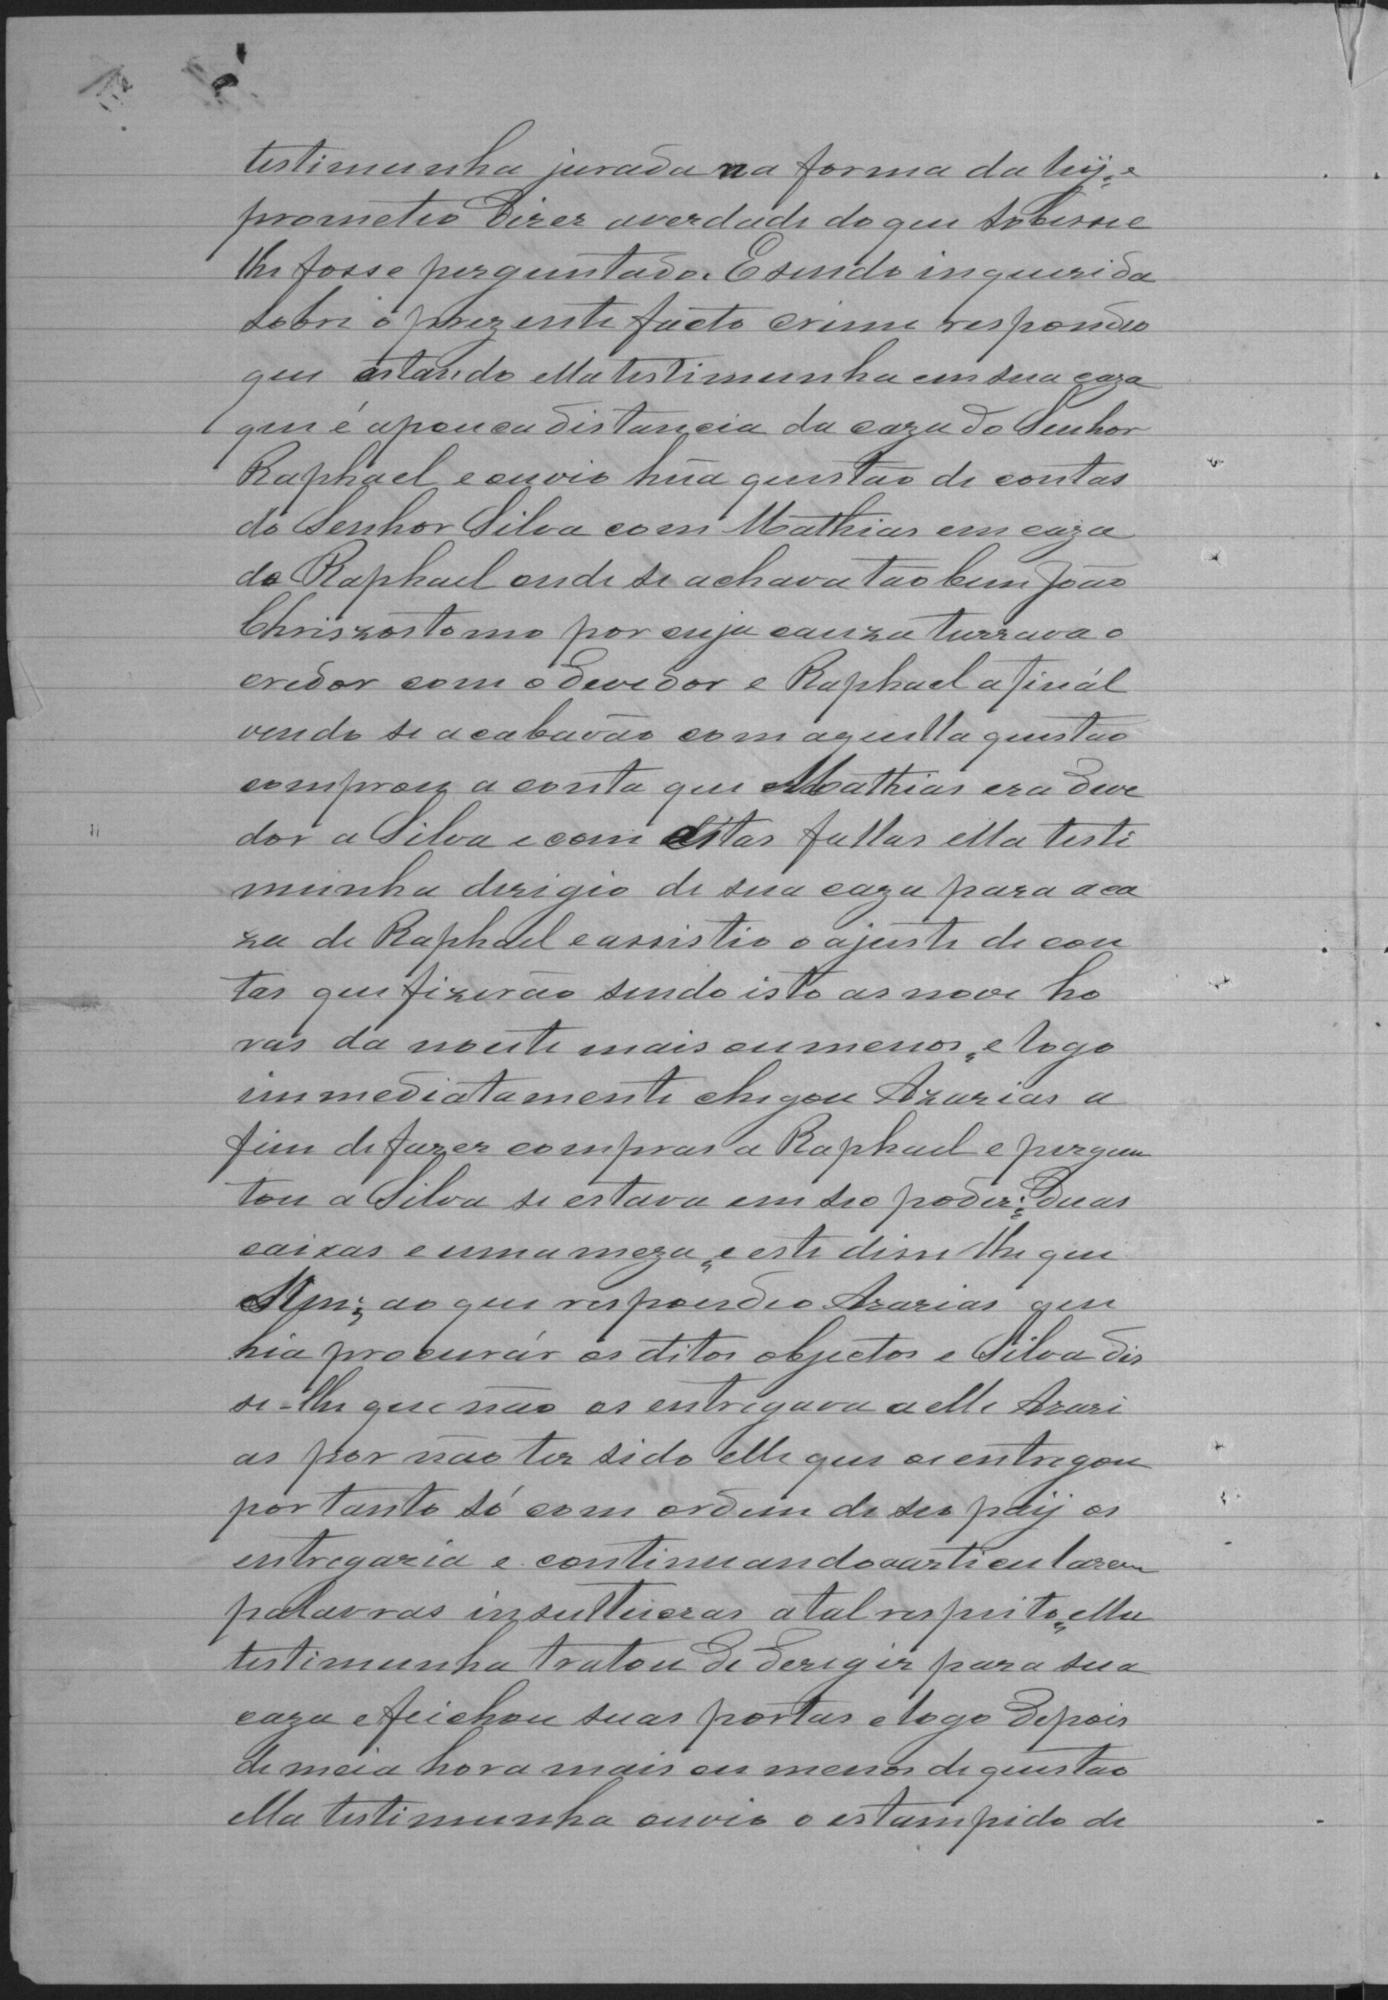 testimunha jurada na forma da leij, e
prometeo dizer a verdade do que soberse e
lhe fosse perguntado. E sendo inquerida
sobre o prezente facto crime respondeo
que estando ella testimunha em sua caza
que é a pouca distancia da caza do Senhor
Raphael e ouvio hũa questão de contas
do Senhor Silva com Mathias em caza
de Raphael onde se achava tão bem João
Chriszostomo por cuja cauza turrava o
credor com o devedor e Raphael a finál
vendo se acabavão com aquella questão
comprou a conta que Mathias era deve
dor a Silva e com estas fallas ella testi
munha derigio de sua caza para a ca
za de Raphael e assistio o ajuste de con
tas que fizerão sendo isto as nove ho
ras da noute mais ou menos, e logo
immediatamente chegou Azarias a
fim de fazer compras a Raphael e pergun
tou a Silva se estava em seo poder; duas
caixas e uma meza, e este disse lhe que
Sim; ao que respondeo Azarias que
hia procurár os ditos objectos e Silva dis
se-lhe que não os entregava a elle Azari
as por não ter sido elle que os entregou
por tanto só com ordem de seo paij os
entregaria e continuando a articularem
palavras insultuozas a tal respeito, ella
testimunha tratou de derigir para sua
caza e feichou suas portas e logo depois
de meia hora mais ou menos de questão
ella testimunha ouvio o estampido de